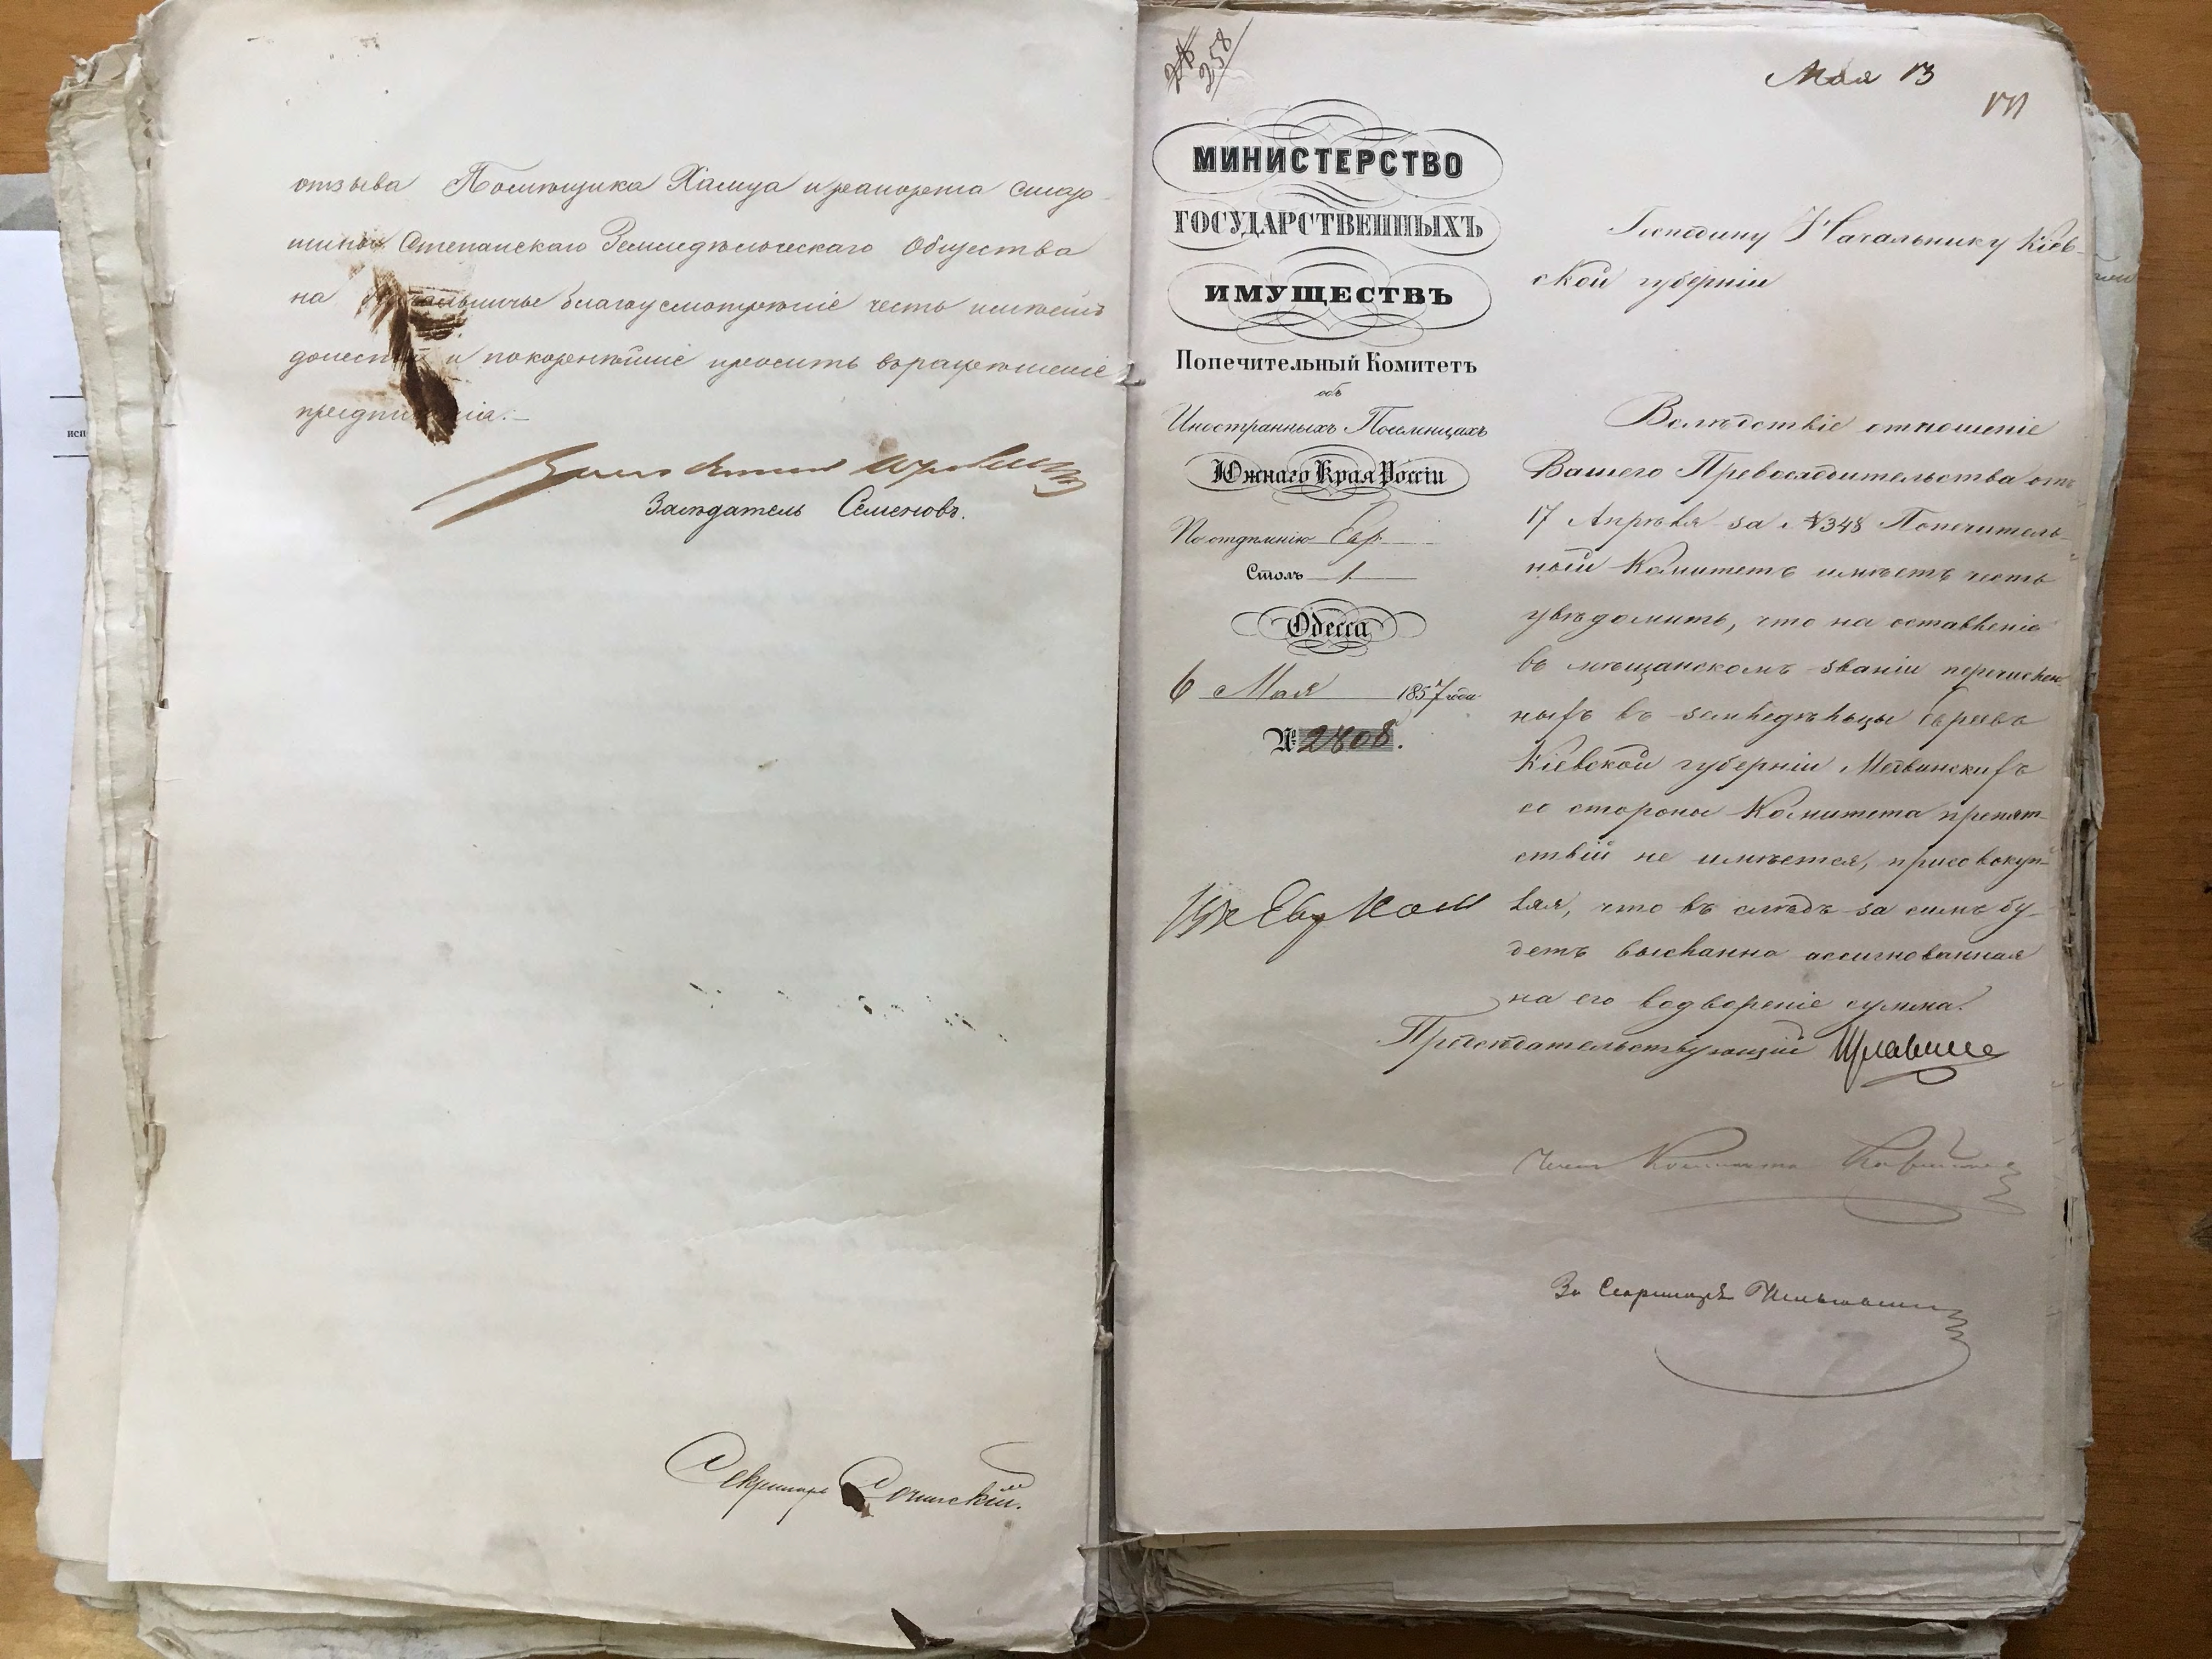 отзыва Помѣщика Хамца и рапорта стар-
шины Степанскаго Земледѣльческаго Общества
на благоусмотрѣніе честь имѣетъ
донести и покорнѣйше просить въ разрѣшеніе
предписанія.
Засѣдатель Семеновъ.
Секретарь
258
Мая 13
МИНИСТЕРСТВО
ГОСУДАРСТВЕННЫХЪ
ИМУЩЕСТВЪ
Попечительный Комитетъ
объ
Иностранныхъ Поселенцахъ
Южнаго Края Россіи
По отдѣленію Евр.
Столъ 1
Одесса
6 Мая 1857 года
№ 2808.
Господину Начальнику Кіев-
ской губерніи
Вслѣдствіе отношеніе
Вашего Превосходительства отъ
17 Апрѣля за №348 Попечитель-
ный Комитетъ имѣетъ честь
увѣдомить, что на оставленіе
въ мѣщанскомъ званіи перечислен-
ныхъ въ земледѣльцы евреевъ
Кіевской губерніи
со стороны Комитета препят-
ствій не имѣется, присовокуп-
ляя, что въ слѣдъ за симъ бу-
детъ высланна ассигнованная
на его водвореніе сумма.
Предсѣдательствующій
Членъ Комитета
За Секретаря